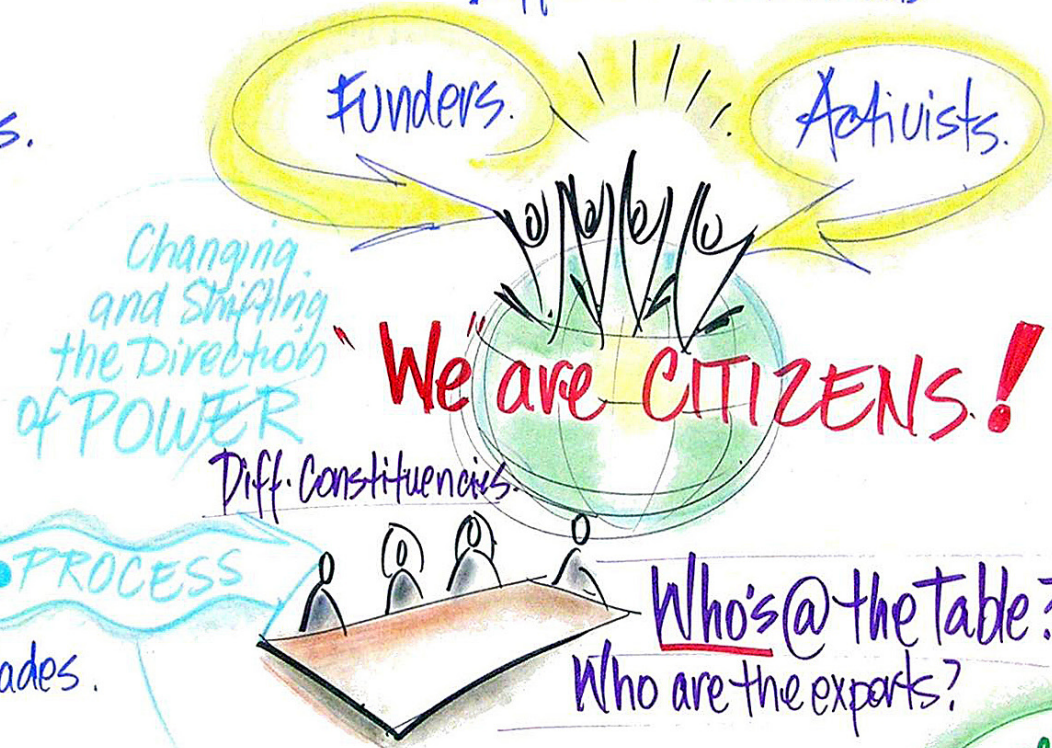 Funders.
Activists.
s.
Changing
and Shifting
the Direction
of POWER
"We" are CITIZENS.!
Diff. Constituencies.
PROCESS
Who's @ the Table?
ades.
Who are the experts?